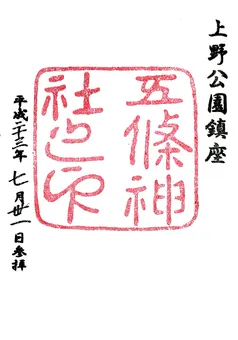 上野公園鎮座
五條神
社之印
平成二十三年七月廿一日参拝